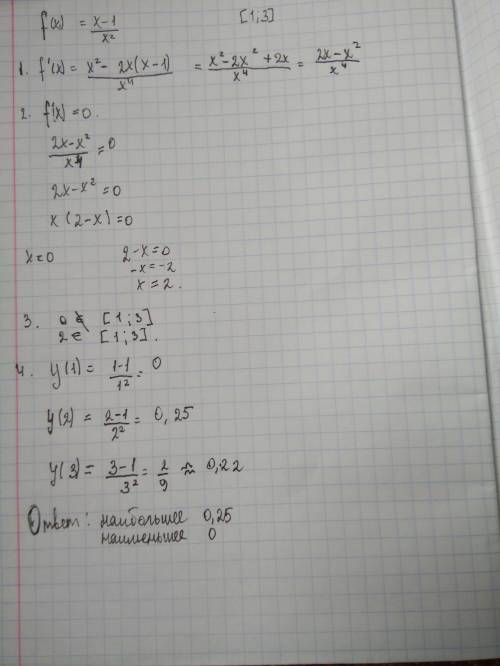 f(x) = x-1/x² [1;3]
1. f'(x) = x² - 2x(x-1)/x⁴ = x²-2x²+2x/x⁴ = 2x-x²/x⁴
2. f'(x) = 0.
2x-x²/x⁴ = 0
2x-x² = 0
x(2-x) = 0
x=0 2-x=0
-x=-2
x=2.
3. 0 ∉ [1;3]
2 ∈ [1;3].
4. y(1) = 1-1/1² = 0
y(2) = 2-1/2² = 0,25
y(3) = 3-1/3² = 2/9 ≈ 0,22
Ответ: наибольшее 0,25
наименьшее 0